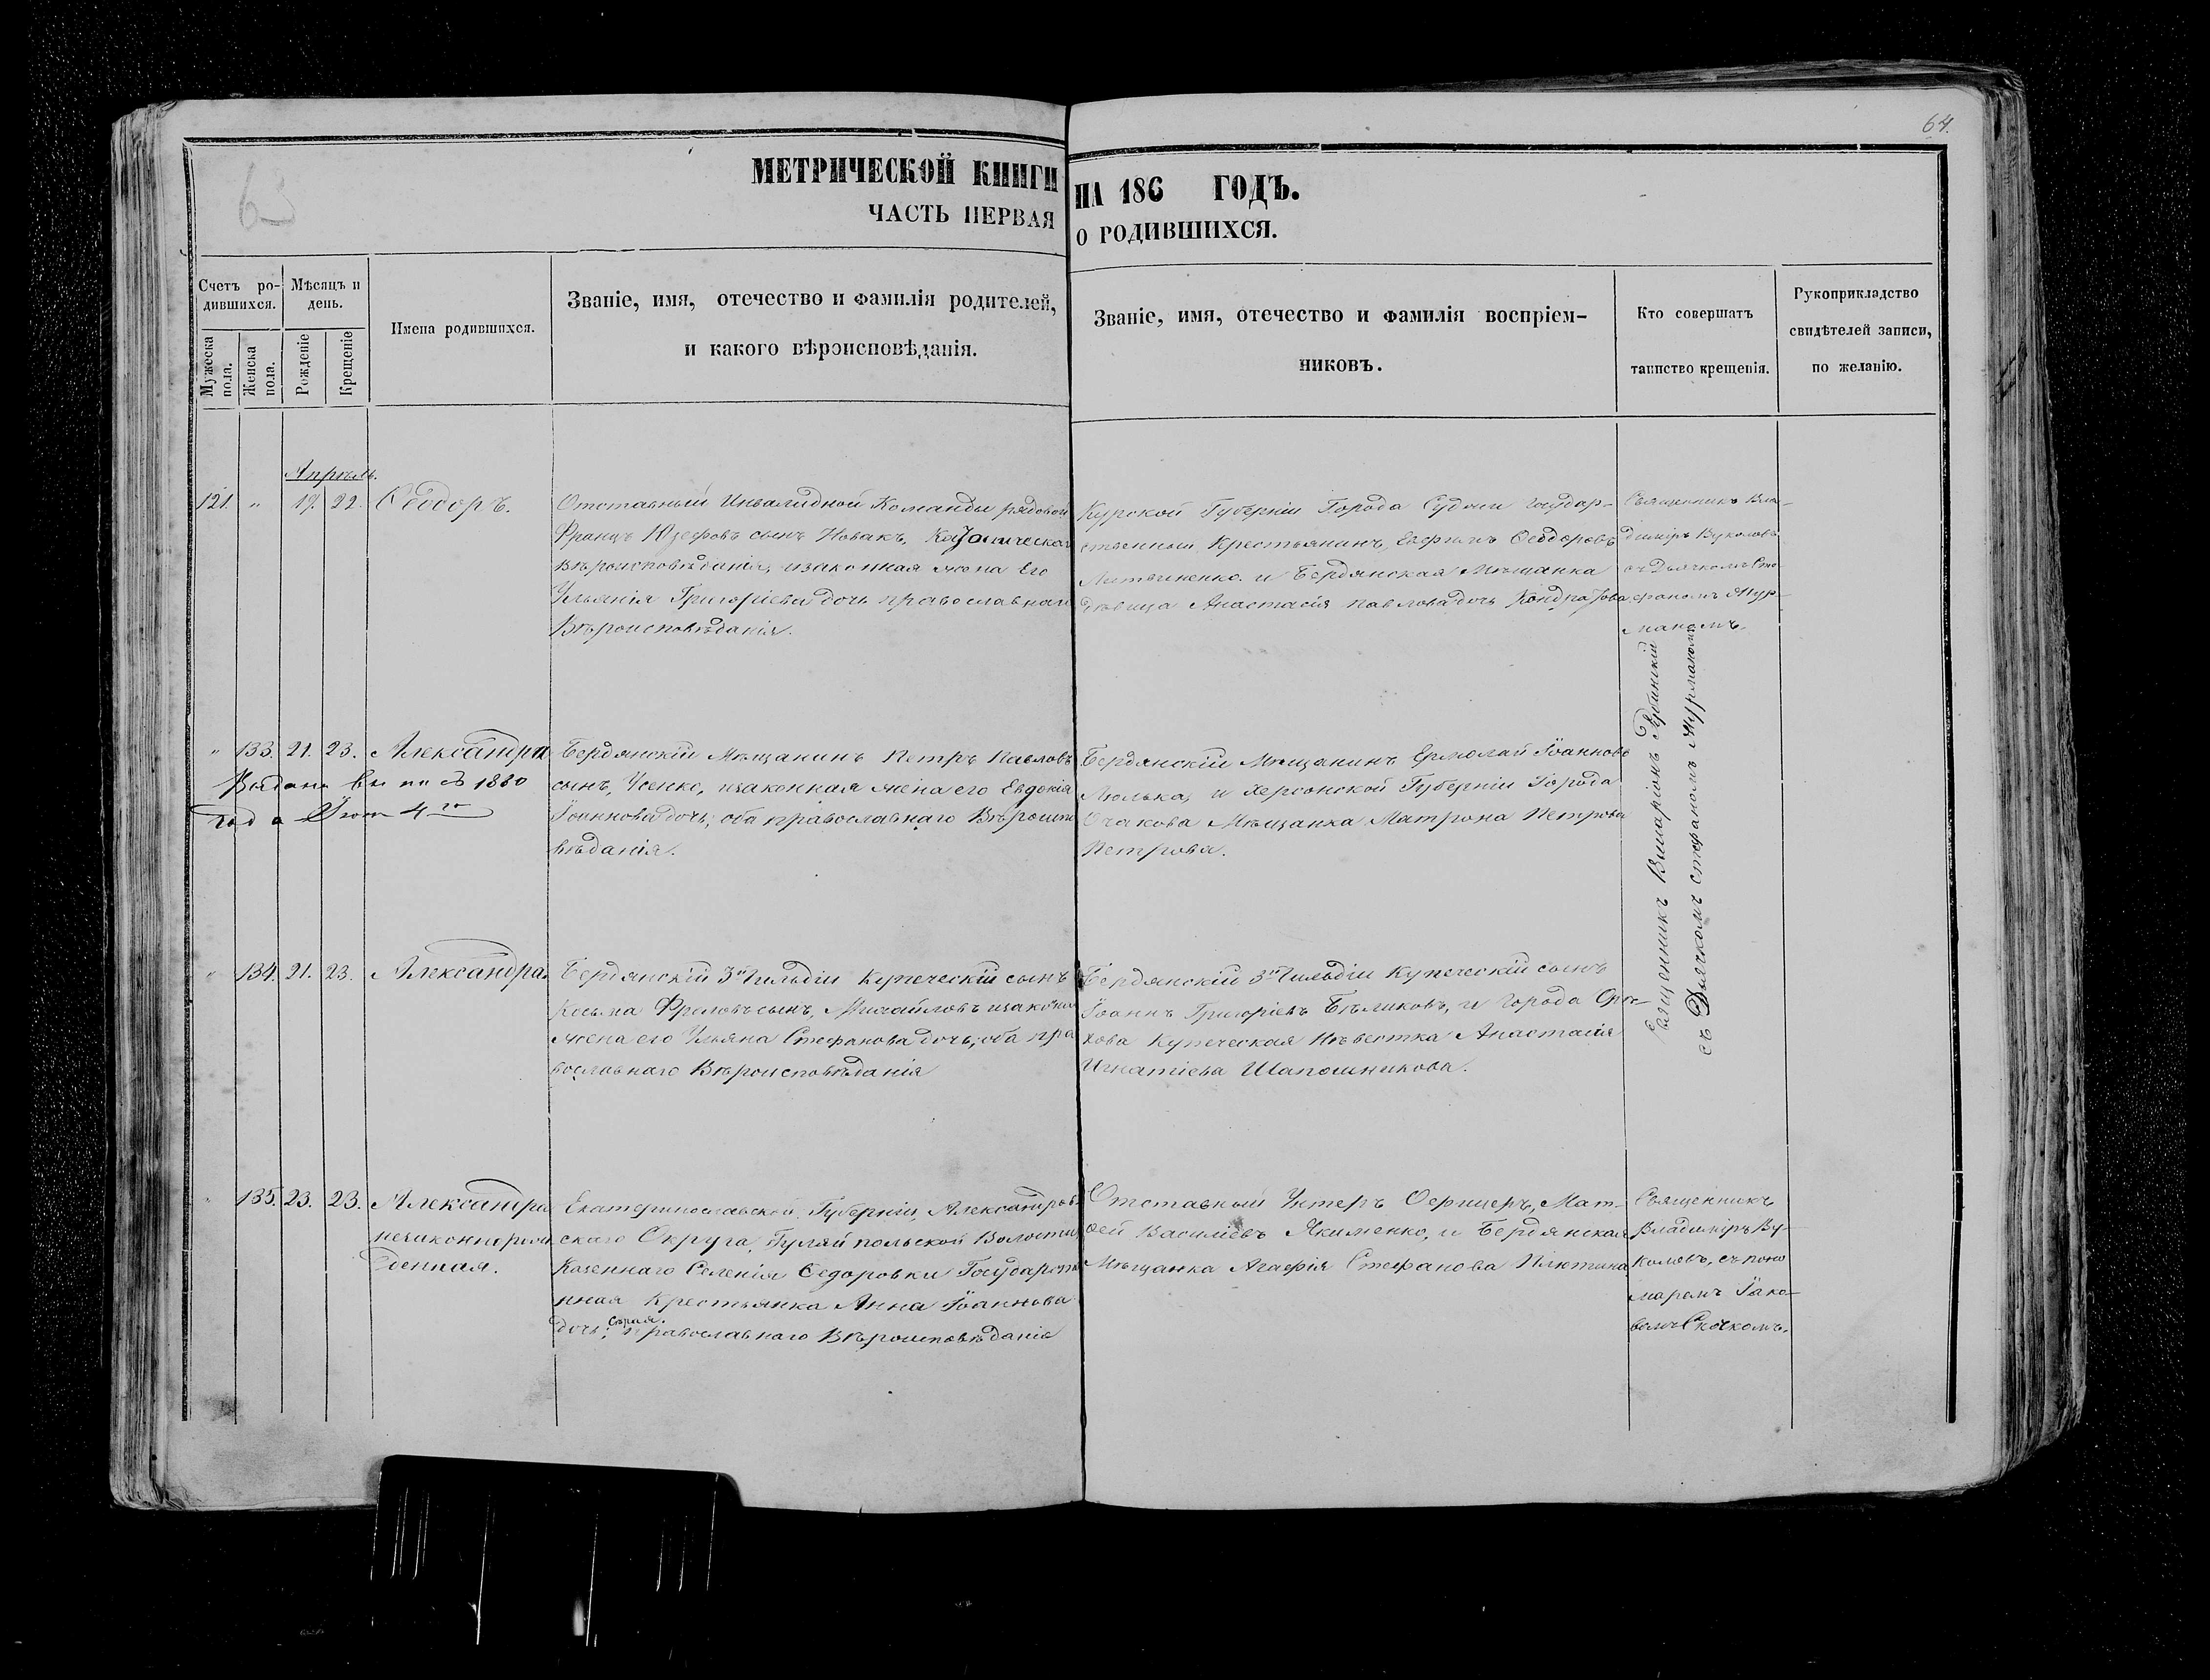 64.
63
МЕТРИЧЕСКОЙ КНИГИ НА 186 ГОДЪ.
ЧАСТЬ ПЕРВАЯ О РОДИВШИХСЯ.
Счетъ ро-
дившихся.
Мужеска пола.
Женска пола.
Мѣсяцъ и
день.
Рожденіе
Крещеніе
Имена родившихся.
Званіе, имя, отечество и фамилія родителей,
и какого вѣроисповѣданія.
Званіе, имя, отечество и фамилія воспріем-
никовъ.
Кто совершатъ
таинство крещенія.
Рукоприкладство
свидѣтелей записи,
по желанію.
Апрѣль.
121. " 17. 22. Ѳеодоръ.
Отставный Инвалидной Команды рядовой
Францъ Юзефовъ сынъ Новакъ,
вѣроисповѣданія, изаконная жена его
Ульянія Григоріева дочь православнаго
Вѣроисповѣданія.
Курской Губерніи Города Суджи Государ-
ственный Крестьянинъ, Евфимъ Ѳеодоровъ
Литвиненко. и Бердянская Мѣщанка
дѣвица Анастасія Павлова дочь Кондратова
Священникъ Вла-
диміръ Вуколовъ
съ Дьячкомъ Сте
фаномъ Мур-
маномъ.
" 133. 21. 23. Александра
1880
Бердянскій Мѣщанинъ Петръ Павловъ
сынъ, Усенко, изаконная жена его Евдокія
Іоаннова дочь; оба православнаго Вѣроиспо
вѣданія.
Бердянскій Мѣщанинъ Ермолай Іоанновъ
Люлька, и Херсонской Губерніи Города
Очакова Мѣщанка Матрона Петрова
Петрова.
Священникъ Иларіонъ
съ Дьячкомъ Стефаномъ Мурманомъ
" 134. 21. 23. Александра
Бердянскій 3й Гильдіи Купеческій сынъ
Косьма Фроловъ сынъ, Михайловъ изаконная
жена его Ульяна Стефанова дочь; оба пра
вославнаго Вѣроисповѣданія
Бердянскій 3й Гильдіи Купеческій сынъ
Іоаннъ Григоріевъ Бѣликовъ, и Города Орѣ-
хова Купеческая Невѣстка Анастасія
Игнатіева Шапошникова.
" 135. 23. 23. Александра
незаконнорож
денная.
Екатеринославской Губерніи, Александров
скаго Округа, Гуляйпольской Волости
Казеннаго Селенія Ѳедоровки Государстве
нная Крестьянка Анна Іоаннова
дочь; православнаго Вѣроисповѣданія
Отставный Унтеръ Офицеръ, Мат-
ѳей Василіевъ Якименко, и Бердянская
Мѣщанка Агафія Стефанова Плютина
Священникъ
Владиміръ Ву-
коловъ, съ поно
маремъ Іако-
вомъ